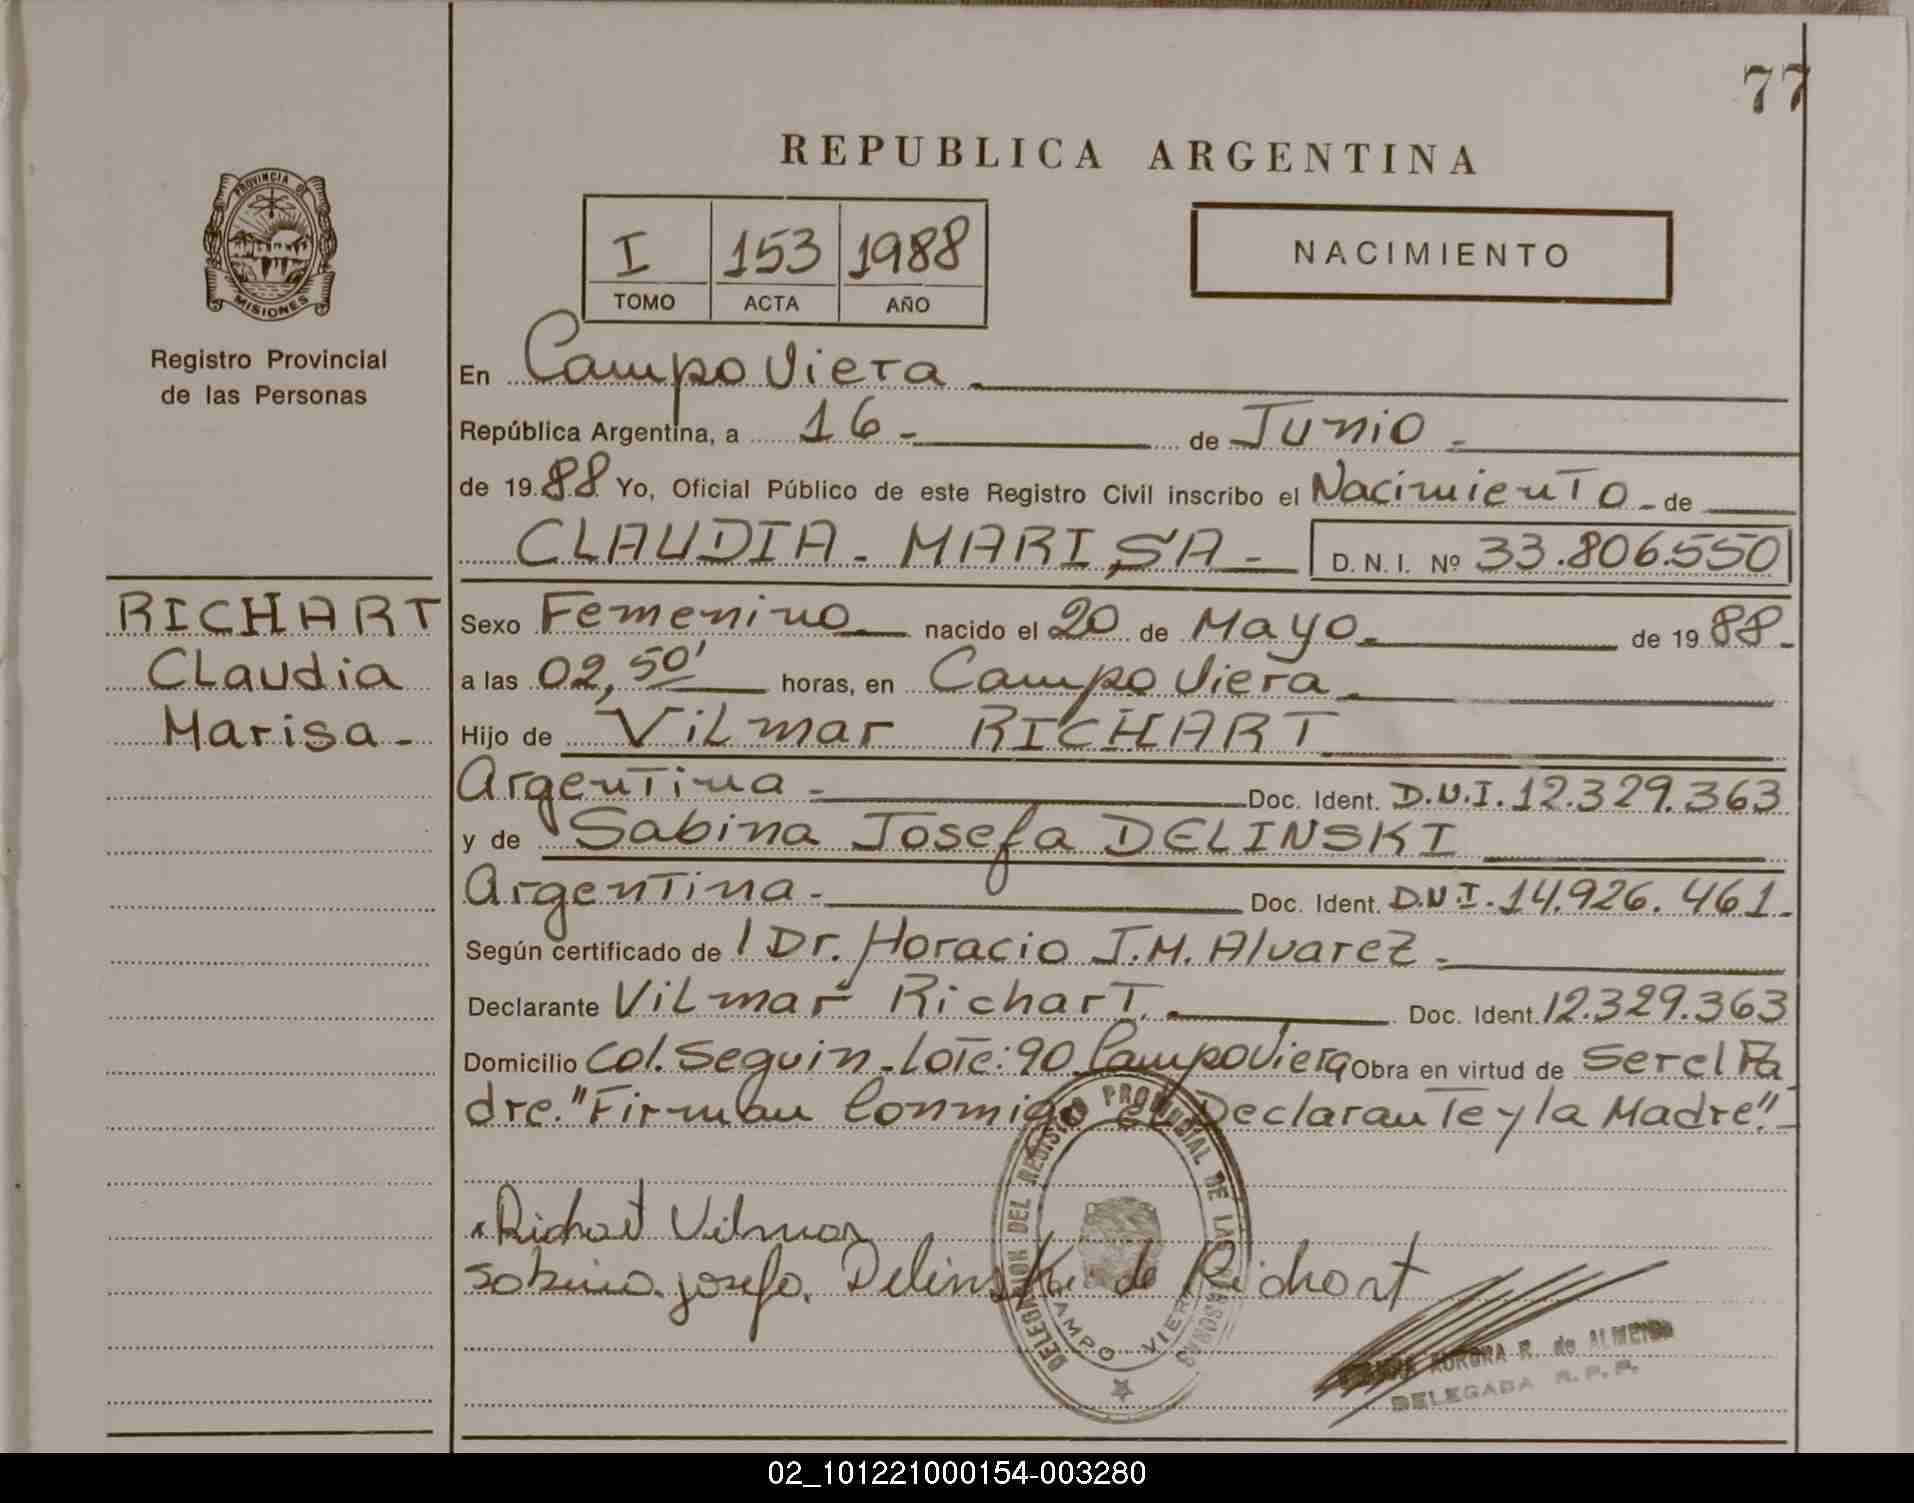 77
REPUBLICA ARGENTINA
PROVINCIA DE
MISIONES
Registro Provincial
de las Personas
I 153 1988
TOMO ACTA AÑO
NACIMIENTO
En Campo Viera
República Argentina, a 16 - de Junio -
de 1988 Yo, Oficial Público de este Registro Civil inscribo el Nacimiento - de
CLAUDIA - MARISA - D. N. I. Nº 33.806.550
RICHART
Claudia
Marisa -
Sexo Femenino nacido el 20 de Mayo - de 1988 -
a las 02,50' horas, en Campo Viera -
Hijo de Vilmar RICHART
Argentina - Doc. Ident. D.N.I. 12.329.363
y de Sabina Josefa DELINSKI
Argentina - Doc. Ident. D.N.I. 14.926.461 -
Según certificado de / Dr. Horacio J.M. Alvarez -
Declarante Vilmar Richart. Doc. Ident. 12.329.363
Domicilio Col. Seguin - Lote: 90 Campo Viera Obra en virtud de Ser el Pa
dre. "Firman Conmigo el Declarante y la Madre". -
Richart Vilmar
Sabina Josefa Delinski de Richart
DELEGACION DEL REGISTRO PROVINCIAL DE LAS PERSONAS
CAMPO VIERA
AURORA R. de ALMEIDA
DELEGADA R. P. P.
02_101221000154-003280